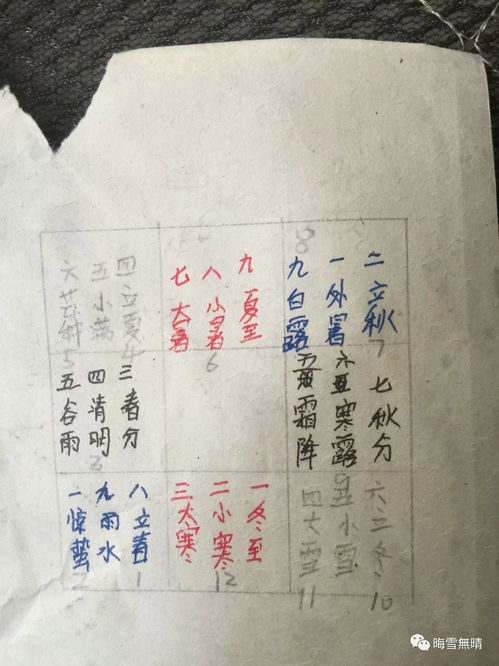 四立夏
五小满
六芒种
4
5
九夏至
八小暑
七大暑
6
8
二立秋
一外暑
九白露
7
三春分
四清明
五谷雨
3
七秋分
寒露
霜降
9
八立春
九雨水
一惊蛰
1
2
一冬至
二小寒
三大寒
12
六三冬
五小雪
四大雪
10
11
晦雪無晴